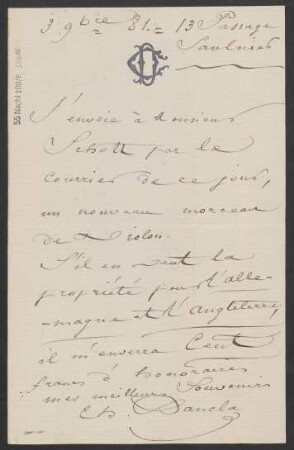 3 9bre 81.= 13 Passage
Saulnier
J'envoie à Monsieur
Schott par le
courrier de ce jour,
un nouveau morceau
de Violon.
S'il en veut la
propriété pour l'alle-
-magne et l'Angleterre,
il m'enverra Cent
francs d'honoraires
mes meilleurs Souvenirs
Ch. Dancla
55 Nachl 100/A